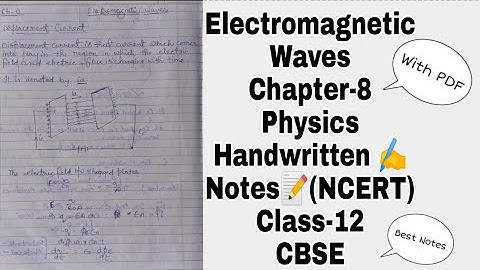 Ch. 8 Electromagnetic Waves
Displacement Current
Displacement current is that current which comes
into play in the region in which the electric
field and electric flux is changing with time.
It is denoted by
The electric field b/w charged plates
Electromagnetic
Waves
Chapter-8
Physics
Handwritten ✍️
Notes📝(NCERT)
Class-12
CBSE
With PDF
Best Notes